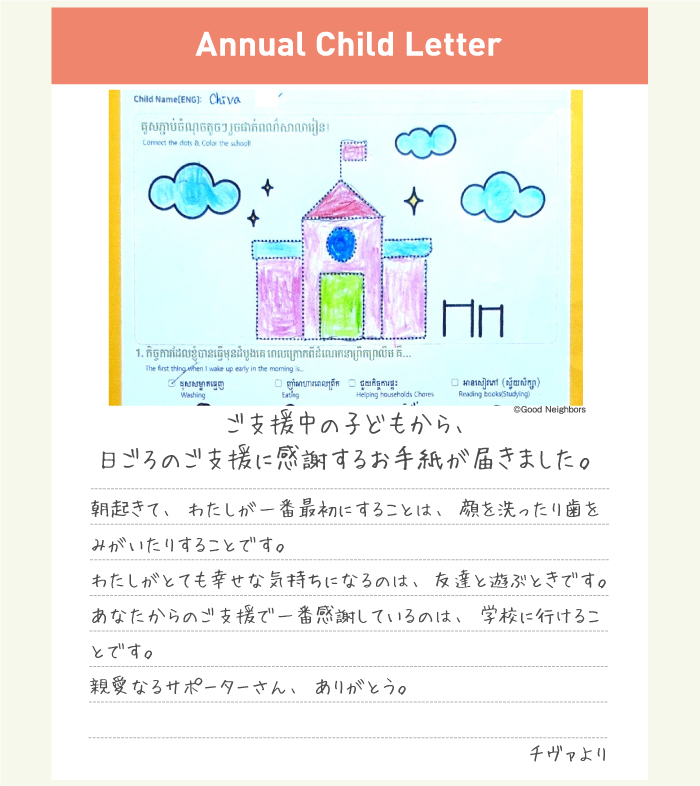 Annual Child Letter
Child Name(ENG): Chiva
គូសភ្ជាប់ចំណុចតូចៗ រួចដាក់ពណ៌សាលារៀន!
Connect the dots & Color the school!
1. កិច្ចការដែលខ្ញុំបានធ្វើមុនដំបូងគេ ពេលក្រោកពីដំណេកនាព្រឹកព្រលឹម គឺ...
The first thing when I wake up early in the morning is..
ដុសសម្អាតធ្មេញ ញ៉ាំអាហារពេលព្រឹក ជួយកិច្ចការផ្ទះ អានសៀវភៅ (ស្វ័យសិក្សា)
Washing Eating Helping households Chores Reading books(Studying)
©Good Neighbors
ご支援中の子どもから、
日ごろのご支援に感謝するお手紙が届きました。
朝起きて、 わたしが一番最初にすることは、 顔を洗ったり歯を
みがいたりすることです。
わたしがとても幸せな気持ちになるのは、 友達と遊ぶときです。
あなたからのご支援で一番感謝しているのは、 学校に行けるこ
とです。
親愛なるサポーターさん、 ありがとう。
チヴァより